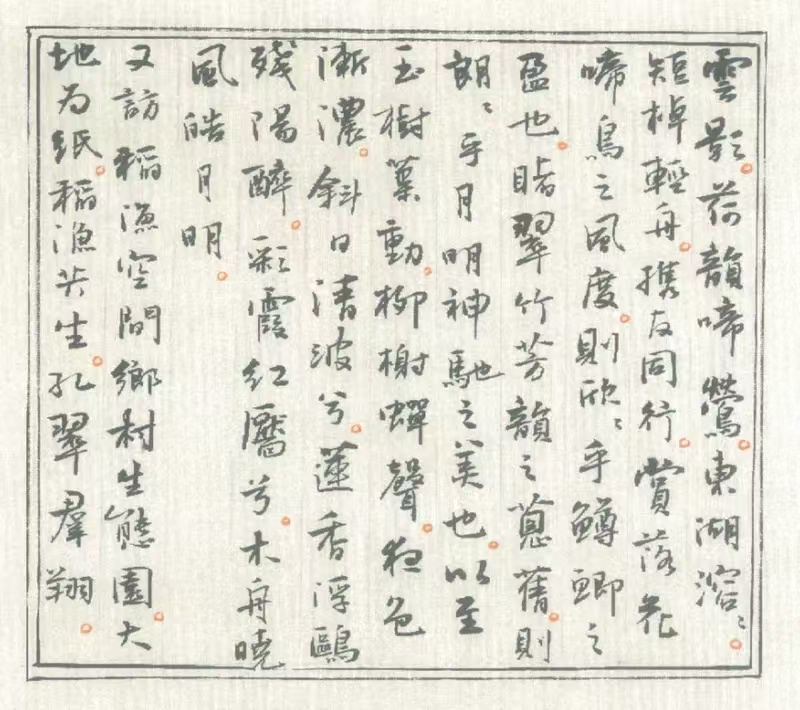 雲影荷韻啼鶯。東湖溶〻。
短棹輕舟。携友同行。賞落花
啼鳥之風度。則欣〻乎鱒鯽之
盈也。睹翠竹芳韻之蔥舊。則
朗〻乎月明神馳之美也。以至
玉樹葉動。柳榭蟬聲。秋色
漸濃。斜日清波兮。蓮香浮鷗
殘陽醉。彩霞紅靨兮。木舟曉
風皓月明。
又訪稻漁空間鄉村生態園。大
地为紙。稻漁共生。孔翠羣翔。